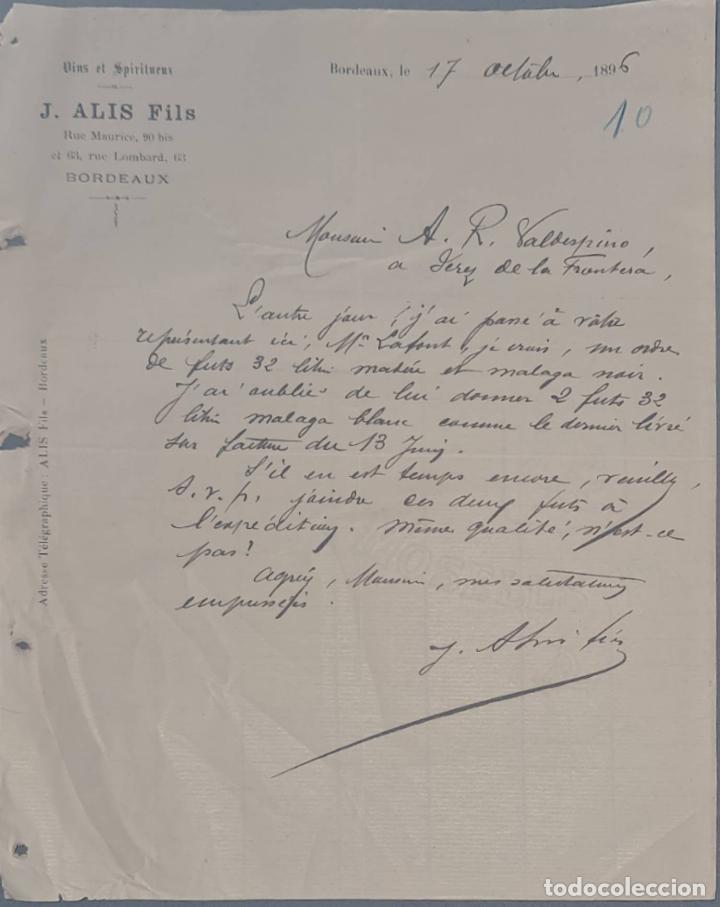 Vins et Spiritueux
J. ALIS Fils
Rue Maurice, 90 bis
et 63, rue Lombard, 63
BORDEAUX
Bordeaux, le 17 octobre, 1896
10
Adresse Télégraphique: ALIS Fils – Bordeaux
Monsieur A. R. Valdespino,
a Jerez de la Frontera,
L'autre jour, j'ai passé à votre
représentant ici, Mr Lafont, je crois, un ordre
de futs 32 litres madère et malaga noir.
J'ai oublié de lui donner 2 futs 32
litres malaga blanc comme le dernier livré
sur facture du 13 Juin.
S'il en est temps encore, veuillez,
s.v.p. joindre ces deux futs à
l'expédition. Même qualité, n'est-ce
pas?
Agréez, Monsieur, mes salutations
empressées.
J. Alis fils
todocoleccion
todocoleccion.net